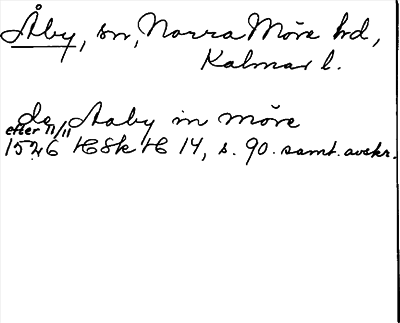 Åby, sn, Norra Möre hd,
Kalmar l.
de Aaby in möre
efter 11/11
1526 HSk H 14, s. 90. samt. avskr.